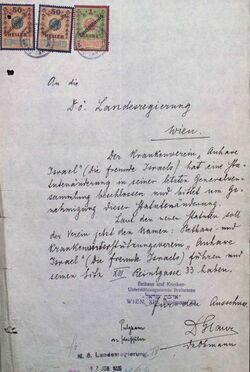 50
HELLER
50
HELLER
1
An die
Dö. Landesregierung
Wien.
Der Krankenverein „Anhave
Israel" (die fremde Israels) hat eine Sta-
tutenänderung in seiner letzten Generalver-
sammlung beschlossen und bittet um Ge-
nehmigung dieser Statutenänderung.
Laut den neuen Statuten soll
der Verein jetzt den Namen: Bethaus- und
Krankenunterstützungsverein „Anhave
Israel" (die fremde Israels) führen und
seinen Sitz XII Reinlgasse 33 haben.
Bethaus und Kranken-
Unterstützungsverein
WIEN, XII.
Für den Ausschuss
N. ö. Landesregierung